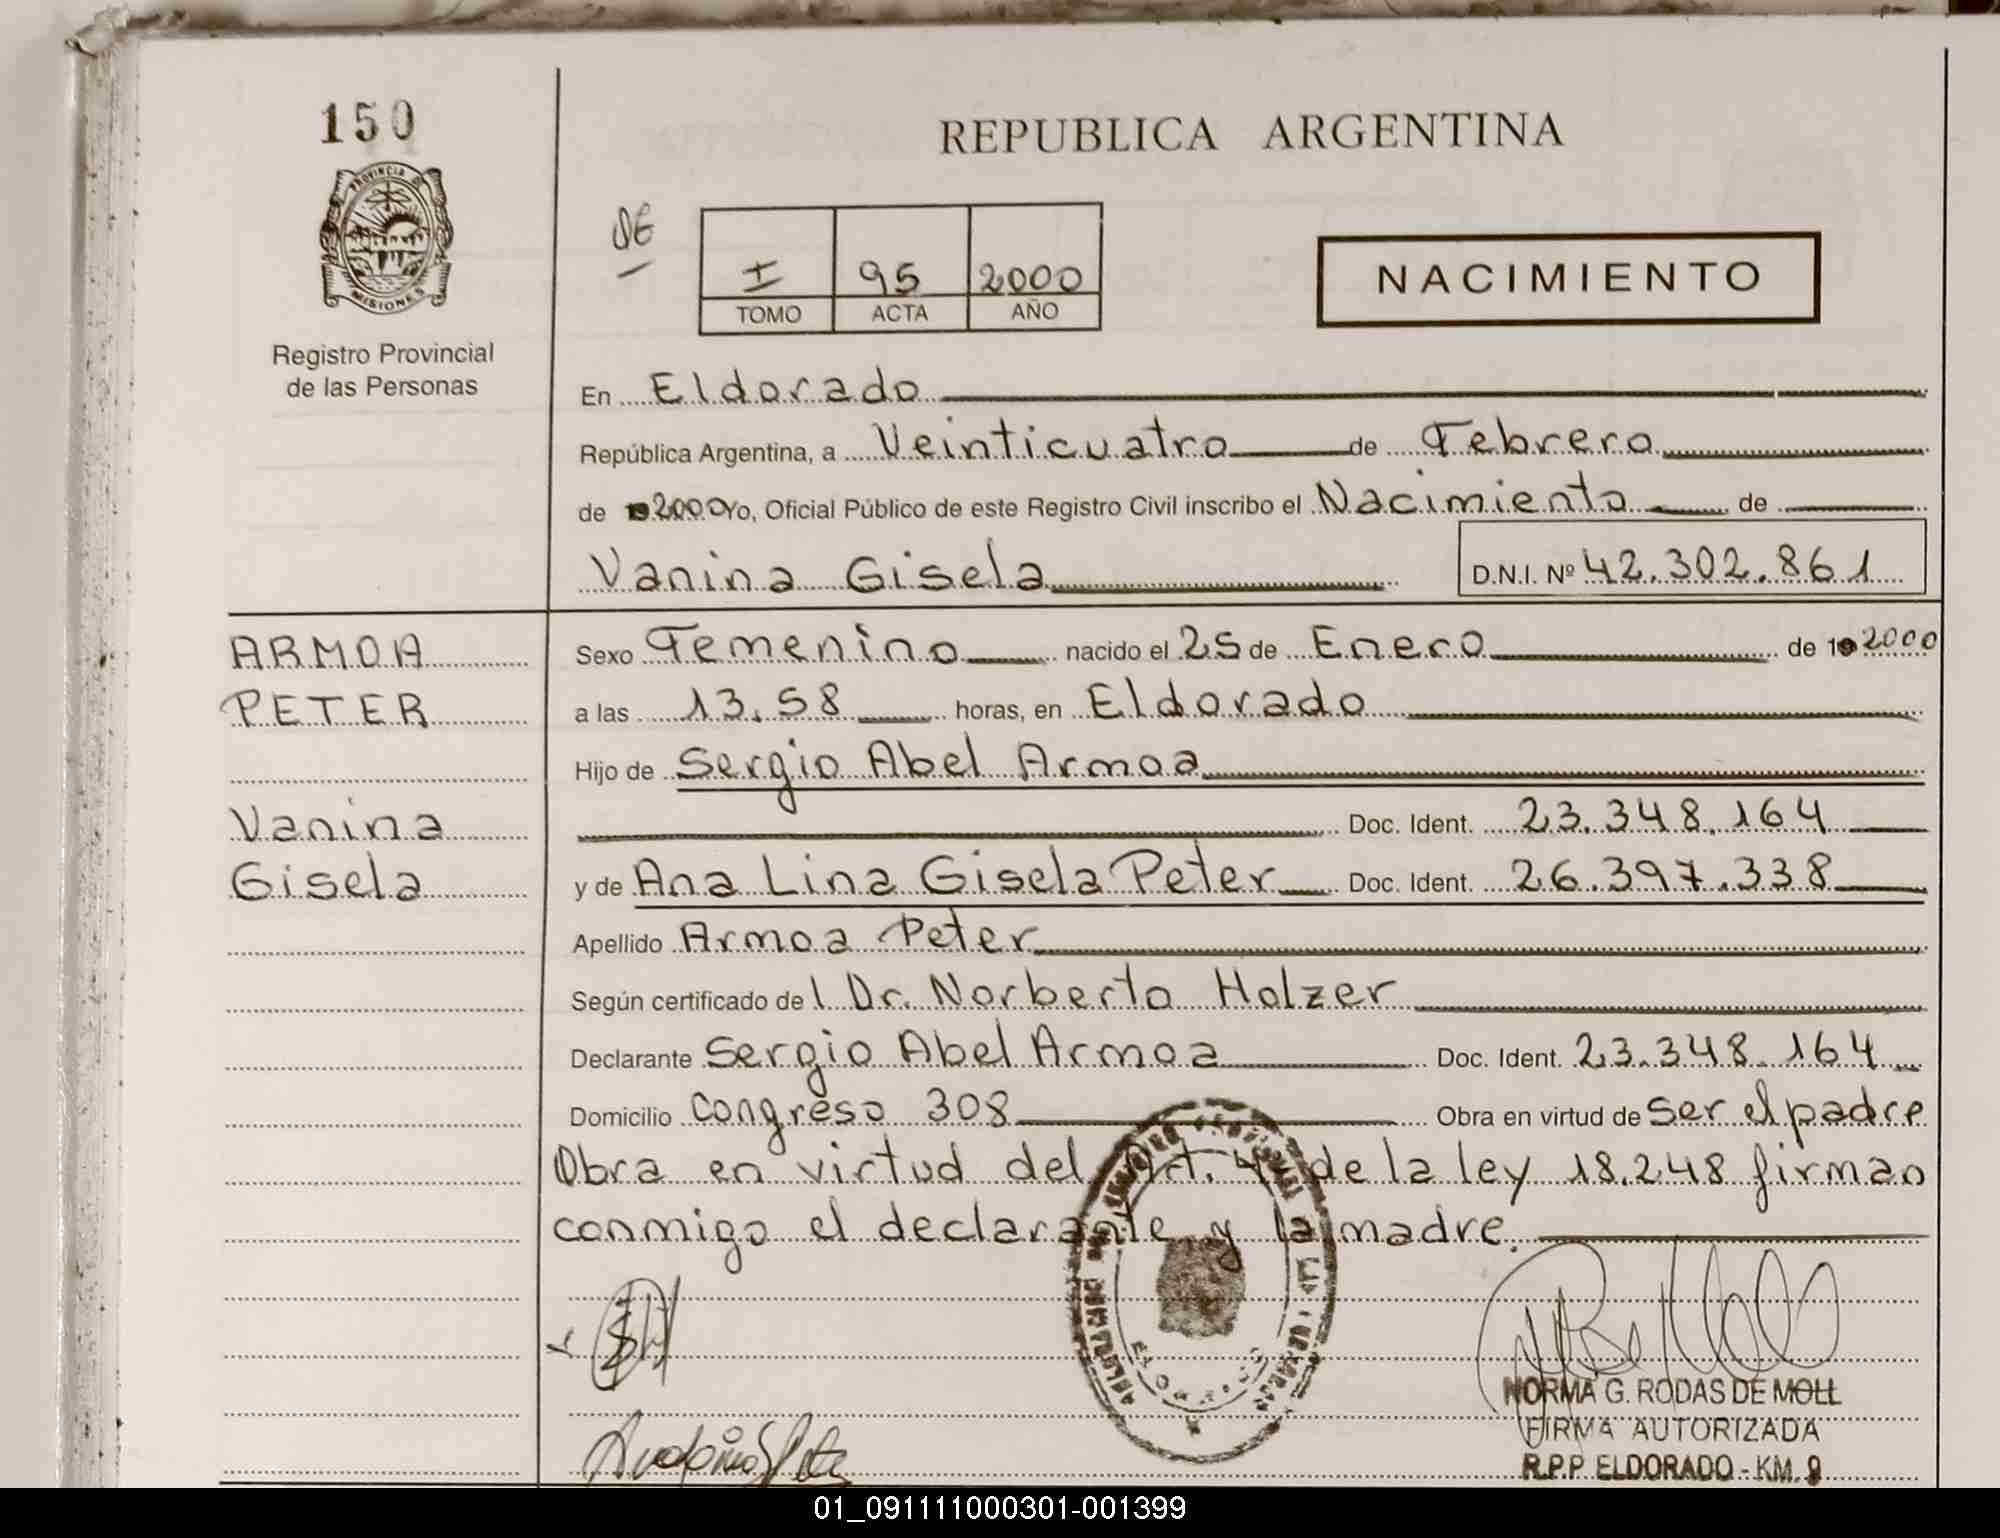 150
REPUBLICA ARGENTINA
PROVINCIA DE
MISIONES
DE
I 95 2000
TOMO ACTA AÑO
NACIMIENTO
Registro Provincial
de las Personas
En Eldorado
República Argentina, a Veinticuatro de Febrero
de 2000 Yo, Oficial Público de este Registro Civil inscribo el Nacimiento de
Vanina Gisela D.N.I. Nº 42.302.861
ARMOA Sexo Femenino nacido el 25 de Enero de 2000
PETER a las 13.58 horas, en Eldorado
Hijo de Sergio Abel Armoa
Vanina Doc. Ident. 23.348.164
Gisela y de Ana Lina Gisela Peter Doc. Ident. 26.397.338
Apellido Armoa Peter
Según certificado del Dr. Norberto Holzer
Declarante Sergio Abel Armoa Doc. Ident. 23.348.164
Domicilio Congreso 308 Obra en virtud de Ser el padre
Obra en virtud del Art. 4 de la ley 18.248 firman
conmigo el declarante y la madre.
NORMA G. RODAS DE MOLL
FIRMA AUTORIZADA
R.P.P ELDORADO - KM. 9
01_091111000301-001399